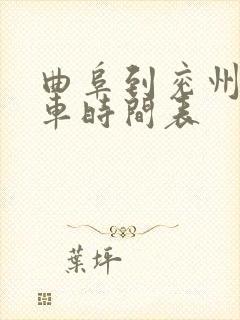 曲阜到兖州
車時間表
葉坪